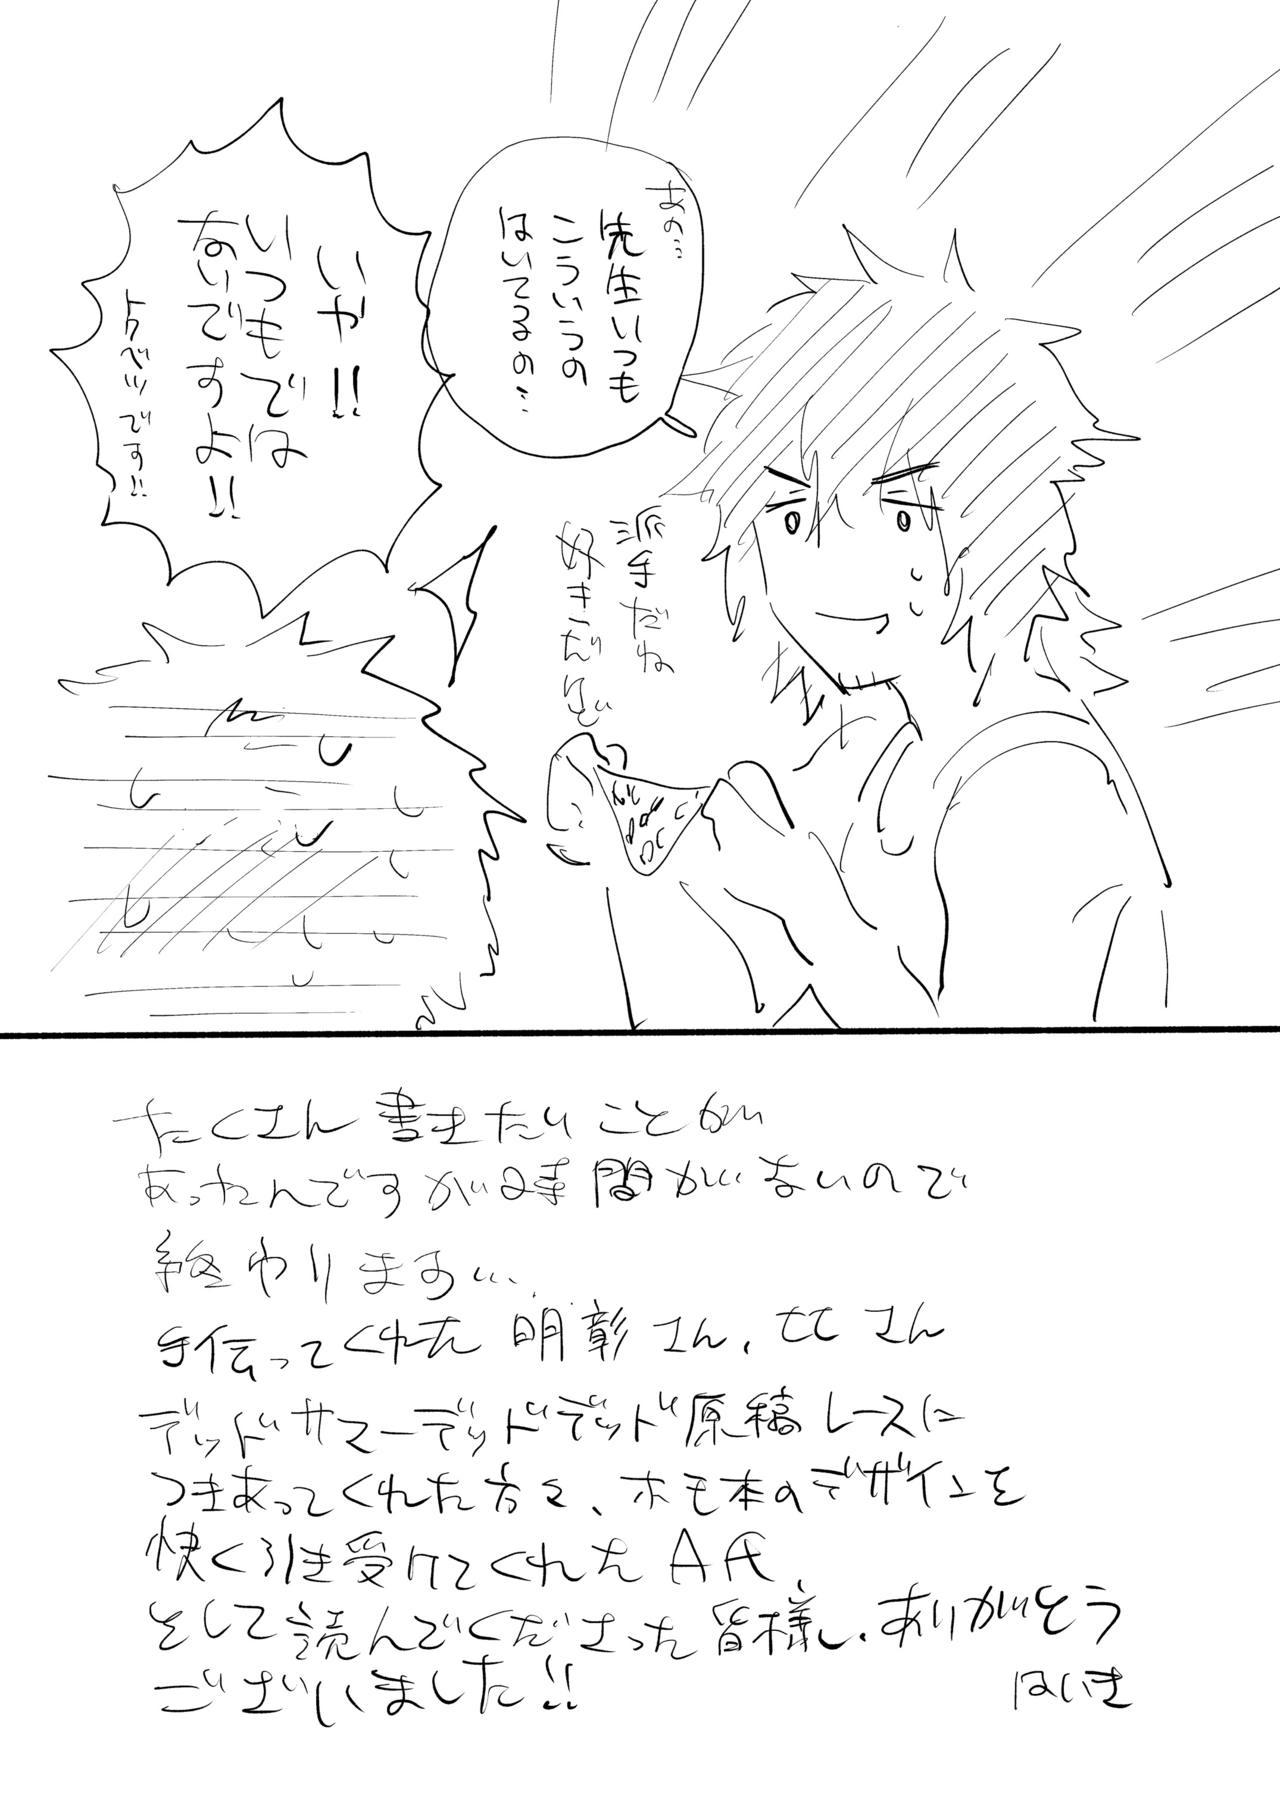 あの…
先生いつも
こういうの
はいてるの…
いや!!
いつもでは
ないですよ!!
トクベツです!!
派手だね
好きだけど
たくさん書きたいことが
あったんですが時間がないので
終わります…
手伝ってくれた明彰さん、七七さん
デッドサマーデッドデッド原稿レースに
つきあってくれた方々、ホモ本のデザインを
快く引き受けてくれたA氏
そして読んでくださった皆様、ありがとう
ございました!!
はいき